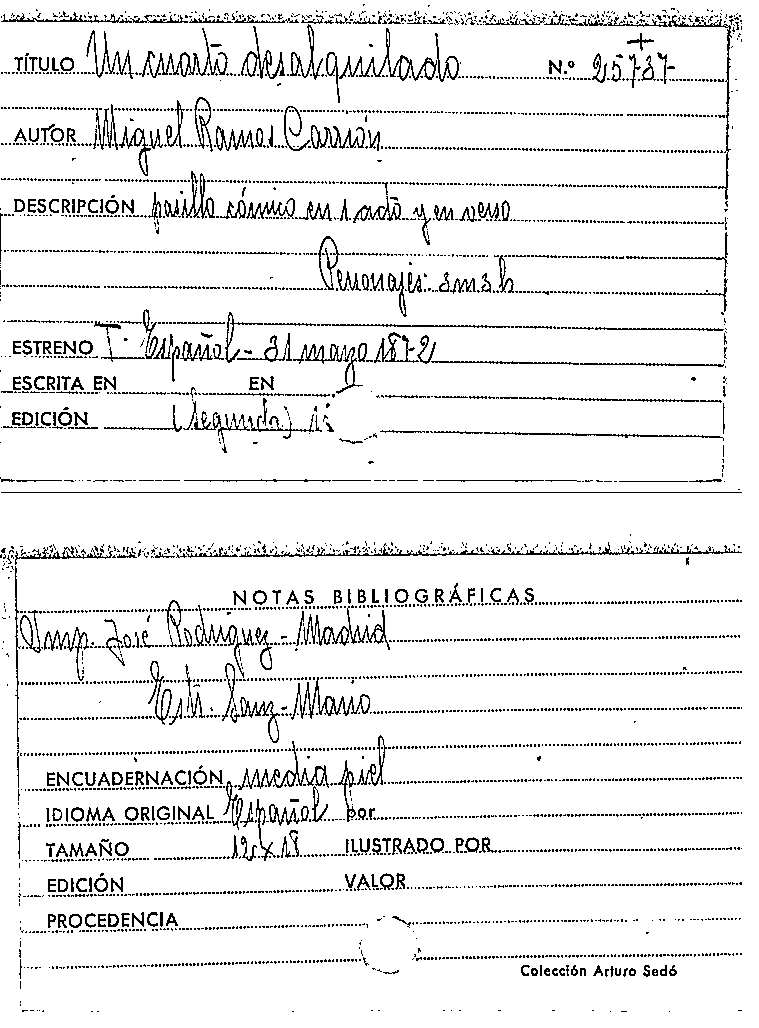 TÍTULO Un cuarto desalquilado N.º 25737
AUTOR Miguel Ramos Carrión
DESCRIPCIÓN pasillo cómico en 1 acto y en verso
Personajes: 3m3h
ESTRENO T. Español - 31 mayo 1872
ESCRITA EN EN
EDICIÓN (Segunda)
NOTAS BIBLIOGRÁFICAS
Imp. José Rodríguez - Madrid
Estr. Sanz - Mario
ENCUADERNACIÓN media piel
IDIOMA ORIGINAL Español por
TAMAÑO 12x18 ILUSTRADO POR
EDICIÓN VALOR
PROCEDENCIA
Colección Arturo Sedó